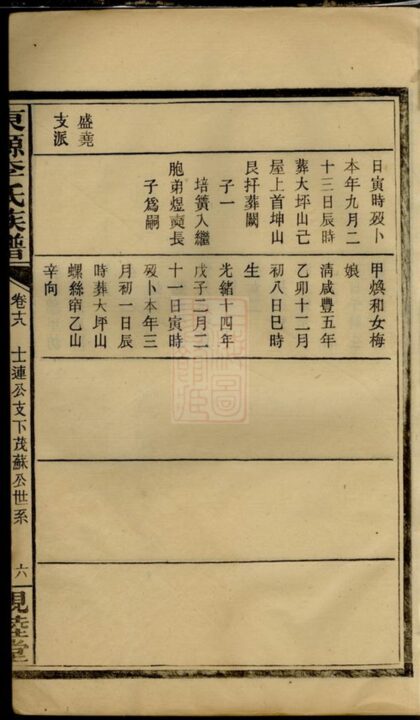 盛堯
支派
日寅時歿卜
本年九月二
十三日辰時
葬大坪山己
屋上首坤山
艮扞葬闕
子一
培簧入繼
胞弟煜奭長
子爲嗣
甲煥和女梅
娘
清咸豐五年
乙卯十二月
初八日巳時
生
光緒十四年
戊子二月二
十一日寅時
歿卜本年三
月初一日辰
時葬大坪山
螺絲㟖乙山
辛向
東源李氏族譜
卷十六
士連公支下茂蘇公世系
六
親睦堂